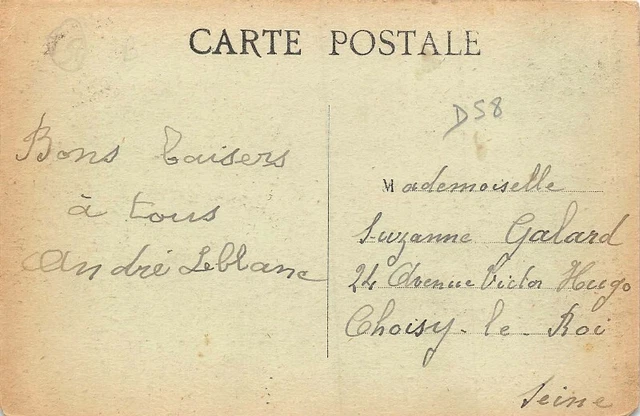 CARTE POSTALE
D58
Bons baisers
à tous
André Leblanc
Mademoiselle
Suzanne Galard
24 Avenue Victor Hugo
Choisy-le-Roi
Seine